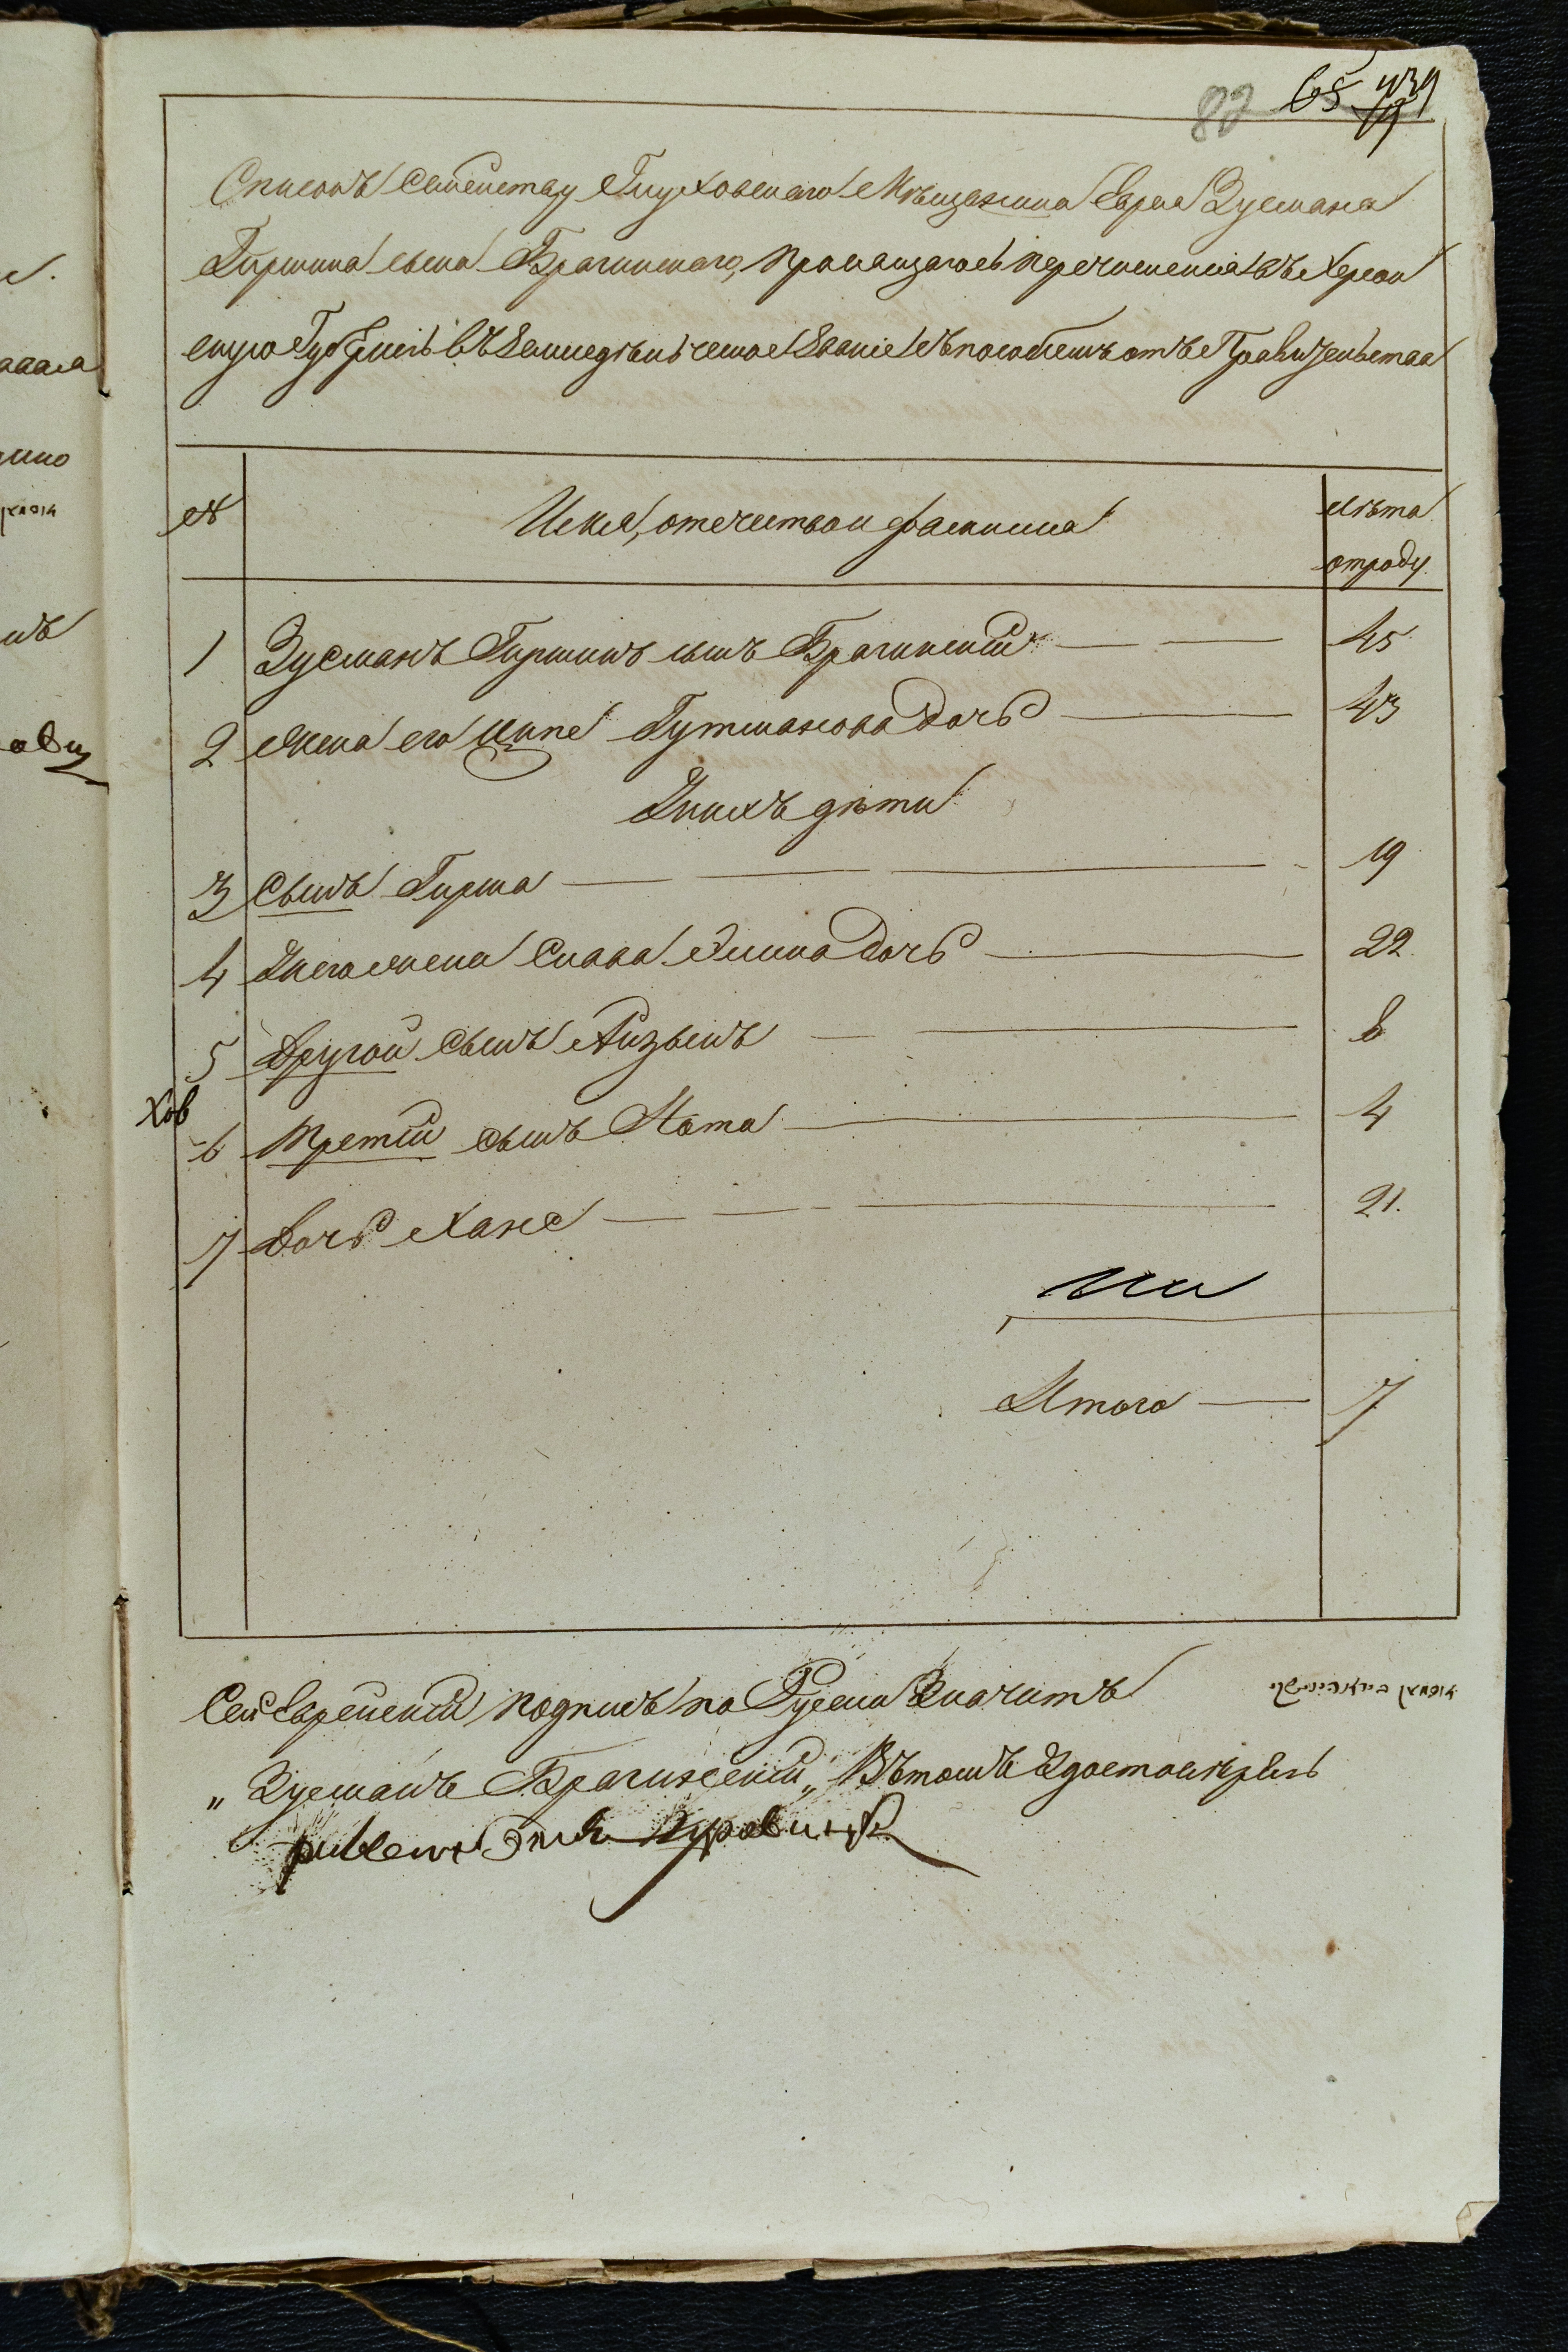 82 65
Списокъ семейству Глуховскаго Мѣщанина Еврея Зусмана
Гиршина сына Брагинскаго, просящагось перечисленія въ Херсон
скую Губернію въ Земледѣльческое Званіе съ пособіемъ отъ Правительства
№ Имя, отечество и фамилия Лѣта
отроду
1 Зусманъ Гиршинъ сынъ Брагинскій 45
2 Жена его Ципе Гутманова дочь 43
У нихъ дѣти
3 Сынъ Гирша 19
4 У него жена Слава Элина дочь 22
5 Другой сынъ Айзыкъ 8
6 Третій сынъ Нота 4
7 Дочь Хане 21.
Итого 7
Сей Еврейскій подпись по Руски Значитъ
„Зусманъ Брагинскій„ Въ томъ Удостовѣряю